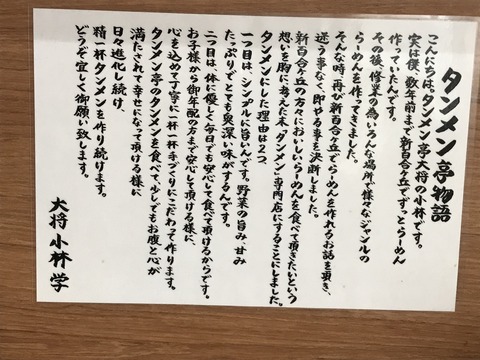 タンメン亭物語
こんにちは。タンメン亭大将の小林です。
実は僕、数年前まで新百合ヶ丘でずっとらーめん
作っていたんです。
その後、修業の為いろんな場所で様々なジャンルの
らーめんを作ってきました。
そんな時、再び新百合ヶ丘でらーめんを作れるお話を頂き、
迷う事なく、即やる事を決断しました。
新百合ヶ丘の方々においしいらーめんを食べて頂きたいという
想いを胸に、考えた末、「タンメン」専門店にすることにしました。
タンメンにした理由は2つ。
一つ目は、シンプルに旨いんです。野菜の旨み、甘み
たっぷりで、とても奥深い味がするんです。
二つ目は、体に優しく毎日でも安心して食べて頂けるからです。
お子様から御年配の方まで安心して頂ける様に、
心を込めて丁寧に一杯一杯手づくりにこだわって作ります。
タンメン亭のタンメンを食べて、少しでもお腹と心が
満たされて幸せになって頂ける様に
日々進化し続け、
精一杯タンメンを作り続けます。
どうぞ宜しく御願い致します。
大将 小林 学